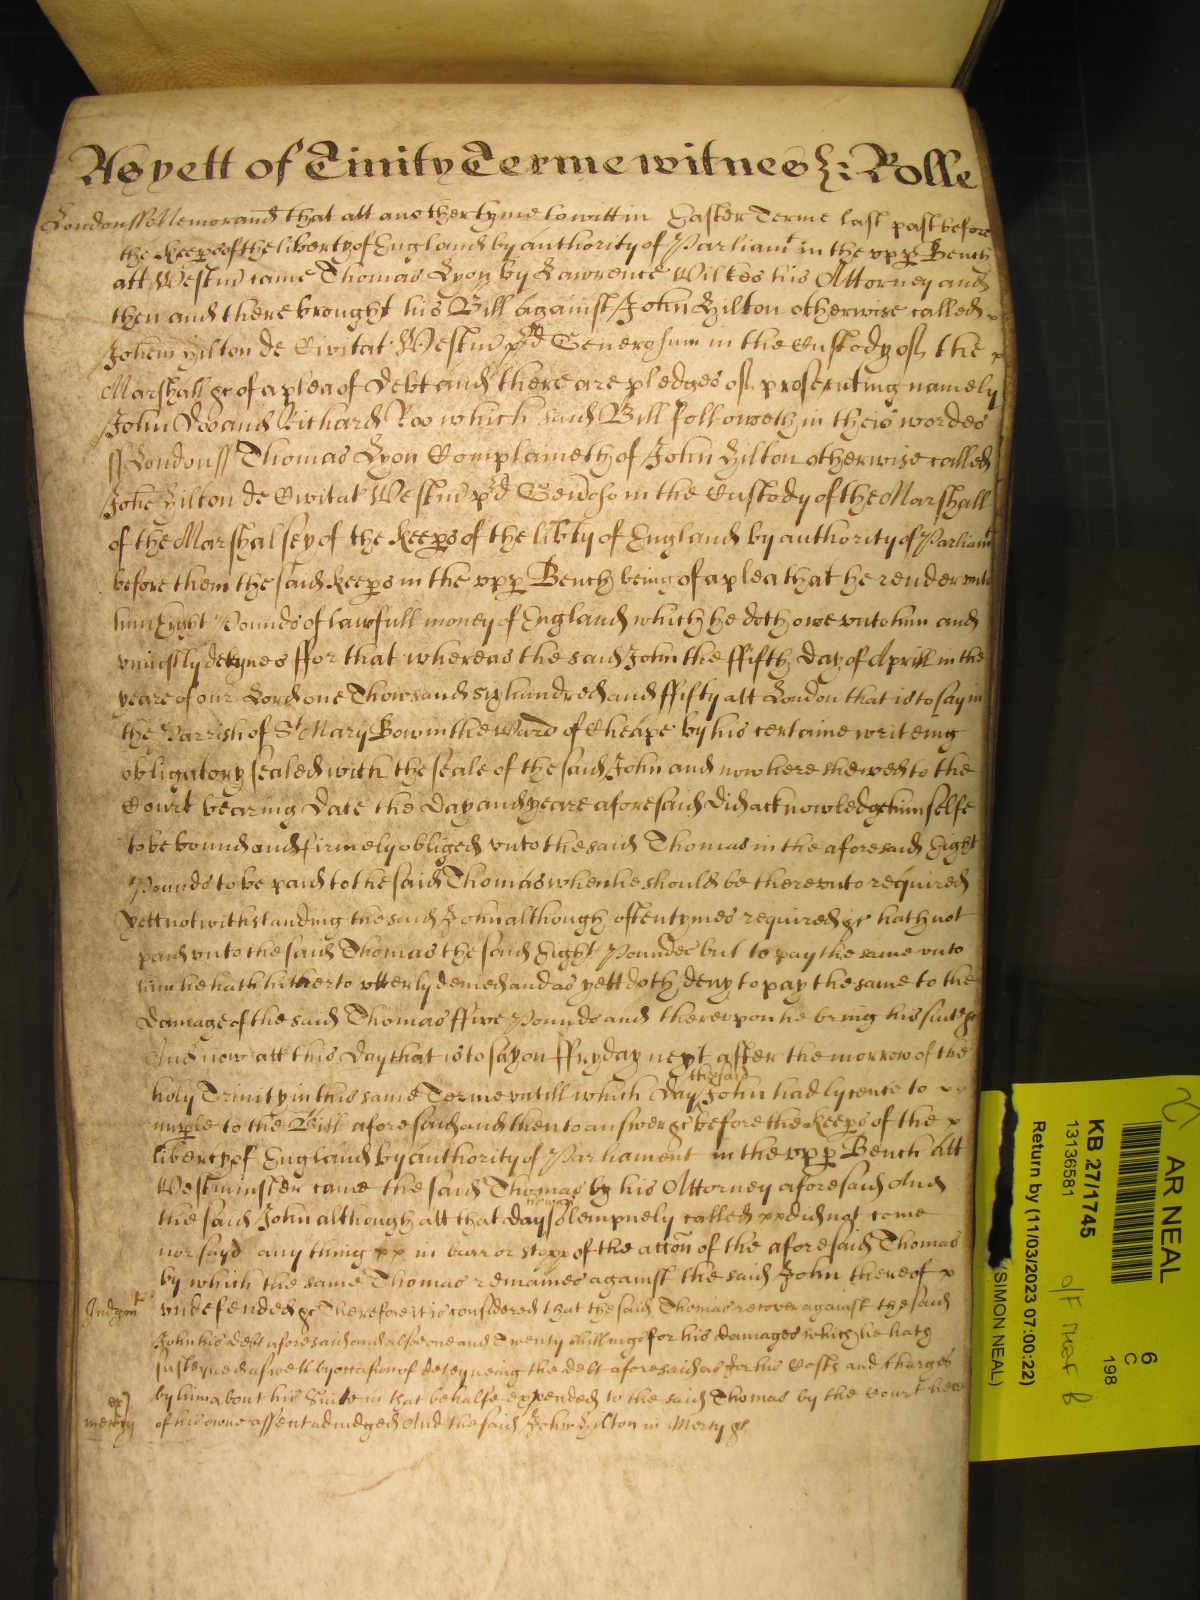 As yett of Trinity Terme witnes H: Rolle
London ss Memorand that att another tyme to witt in Easter Terme last past before
the keeps of the liberty of England by authority of Parliamt in the upp Bench
att Westm came Thomas Lyon by Lawrence Wilkes his Attorney and
then and there brought his Bill against John Hilton otherwise called
Johem Hilton de Civitat Westm pd Generosum in the Custody of the
Marshall &c of a plea of Debt and there are pledges of prosecuting namely
John Doo and Richard Roo which said Bill followeth in theis wordes
ss London ss Thomas Lyon Complaineth of John Hilton otherwise called
Johem Hilton de Civitat Westm pd Geñoso in the Custody of the Marshall
of the Marshalsey of the keeps of the libty of England by authority of Parliamt
before them the said keeps in the upp Bench being of a plea that he render unto
him Eight Pounds of lawfull money of England which he doth owe unto him and
uniustly deteynes ffor that whereas the said John the ffifth day of Aprill in the
yeare of our Lord one Thowsand six hundred and ffifty att London that is to say in
the Parrish of St Mary Bow in the Ward of Cheape by his certaine writeing
obligatory sealed with the seale of the said John and now here shewed to the
Court bearing Date the day and yeare aforesaid did acknowledge himselfe
to be bound and firmely obliged unto the said Thomas in the aforesaid Eight
Pounds to be paid to the said Thomas when he should be thereunto required
Yett notwithstanding the said John although oftentymes required &c hath not
paid unto the said Thomas the said Eight Poundes but to pay the same unto
him he hath hitherto utterly denied and as yett doth deny to pay the same to the
damage of the said Thomas ffive Pounds and thereupon he bring his suite &c
And now att this day that is to say on ffryday next after the morrow of the
holy Trinity in this same Terme untill which day the said John had lycence to
imple to the Bill aforesaid and then to answer &c before the keeps of the
liberty of England by authority of Parliament in the upp Bench att
Westminster came the said Thomas by his Attorney aforesaid And
the said John although att that day solempnely called did not come
nor sayd any thing in barr or stopp of the accon of the aforesaid Thomas
by which the same Thomas remaines against the said John thereof
Judgmt undefended &c Therefore it is considered that the said Thomas recover against the said
John his debt aforesaid and alsoe one and Twenty shillings for his damages which he hath
susteyned aswell by occasion of deteyneing the debt aforesaid as for his Costs and charges
by him about his Suite in that behalfe expended to the said Thomas by the Court here
mercy of his owne assent adiudged And the said John Hilton in Mercy &c
AR NEAL
6
C
198
KB 27/1745
13136581
Return by (11/03/2023 07:00:22)
(SIMON NEAL)